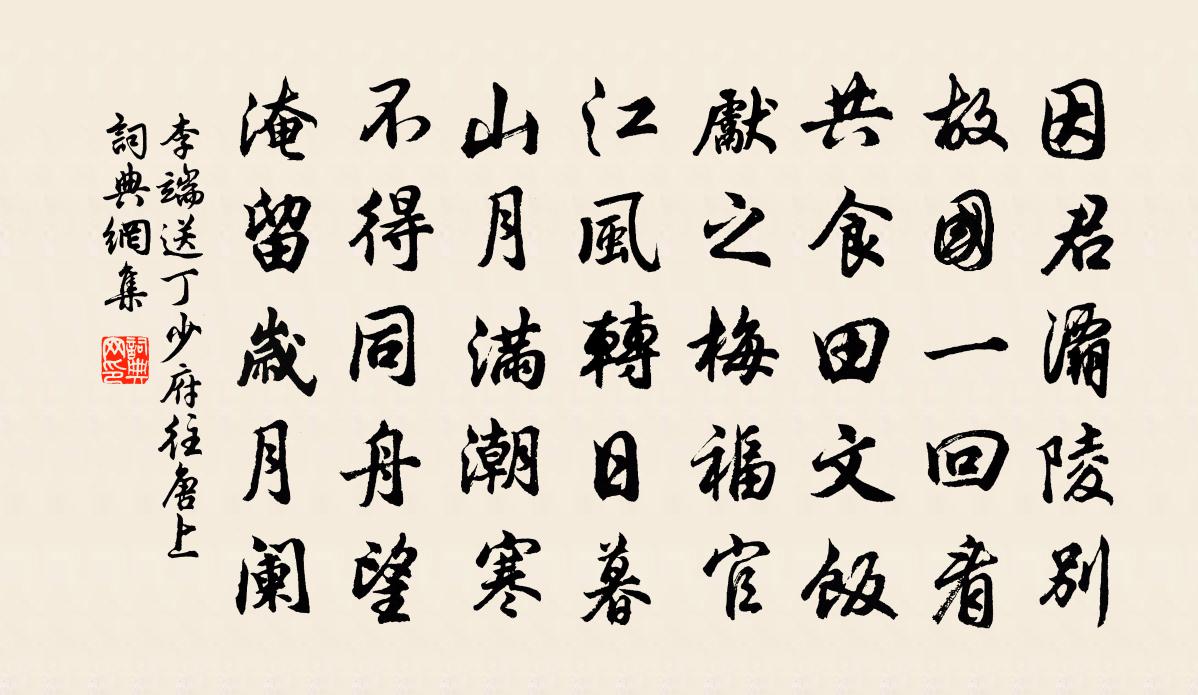 因君灞陵別
故國一回看
共食田文飯
獻之梅福官
江風轉日暮
山月滿潮寒
不得同舟望
淹留歲月闌
李端送丁少府往唐上
詞典網集
詞典網印